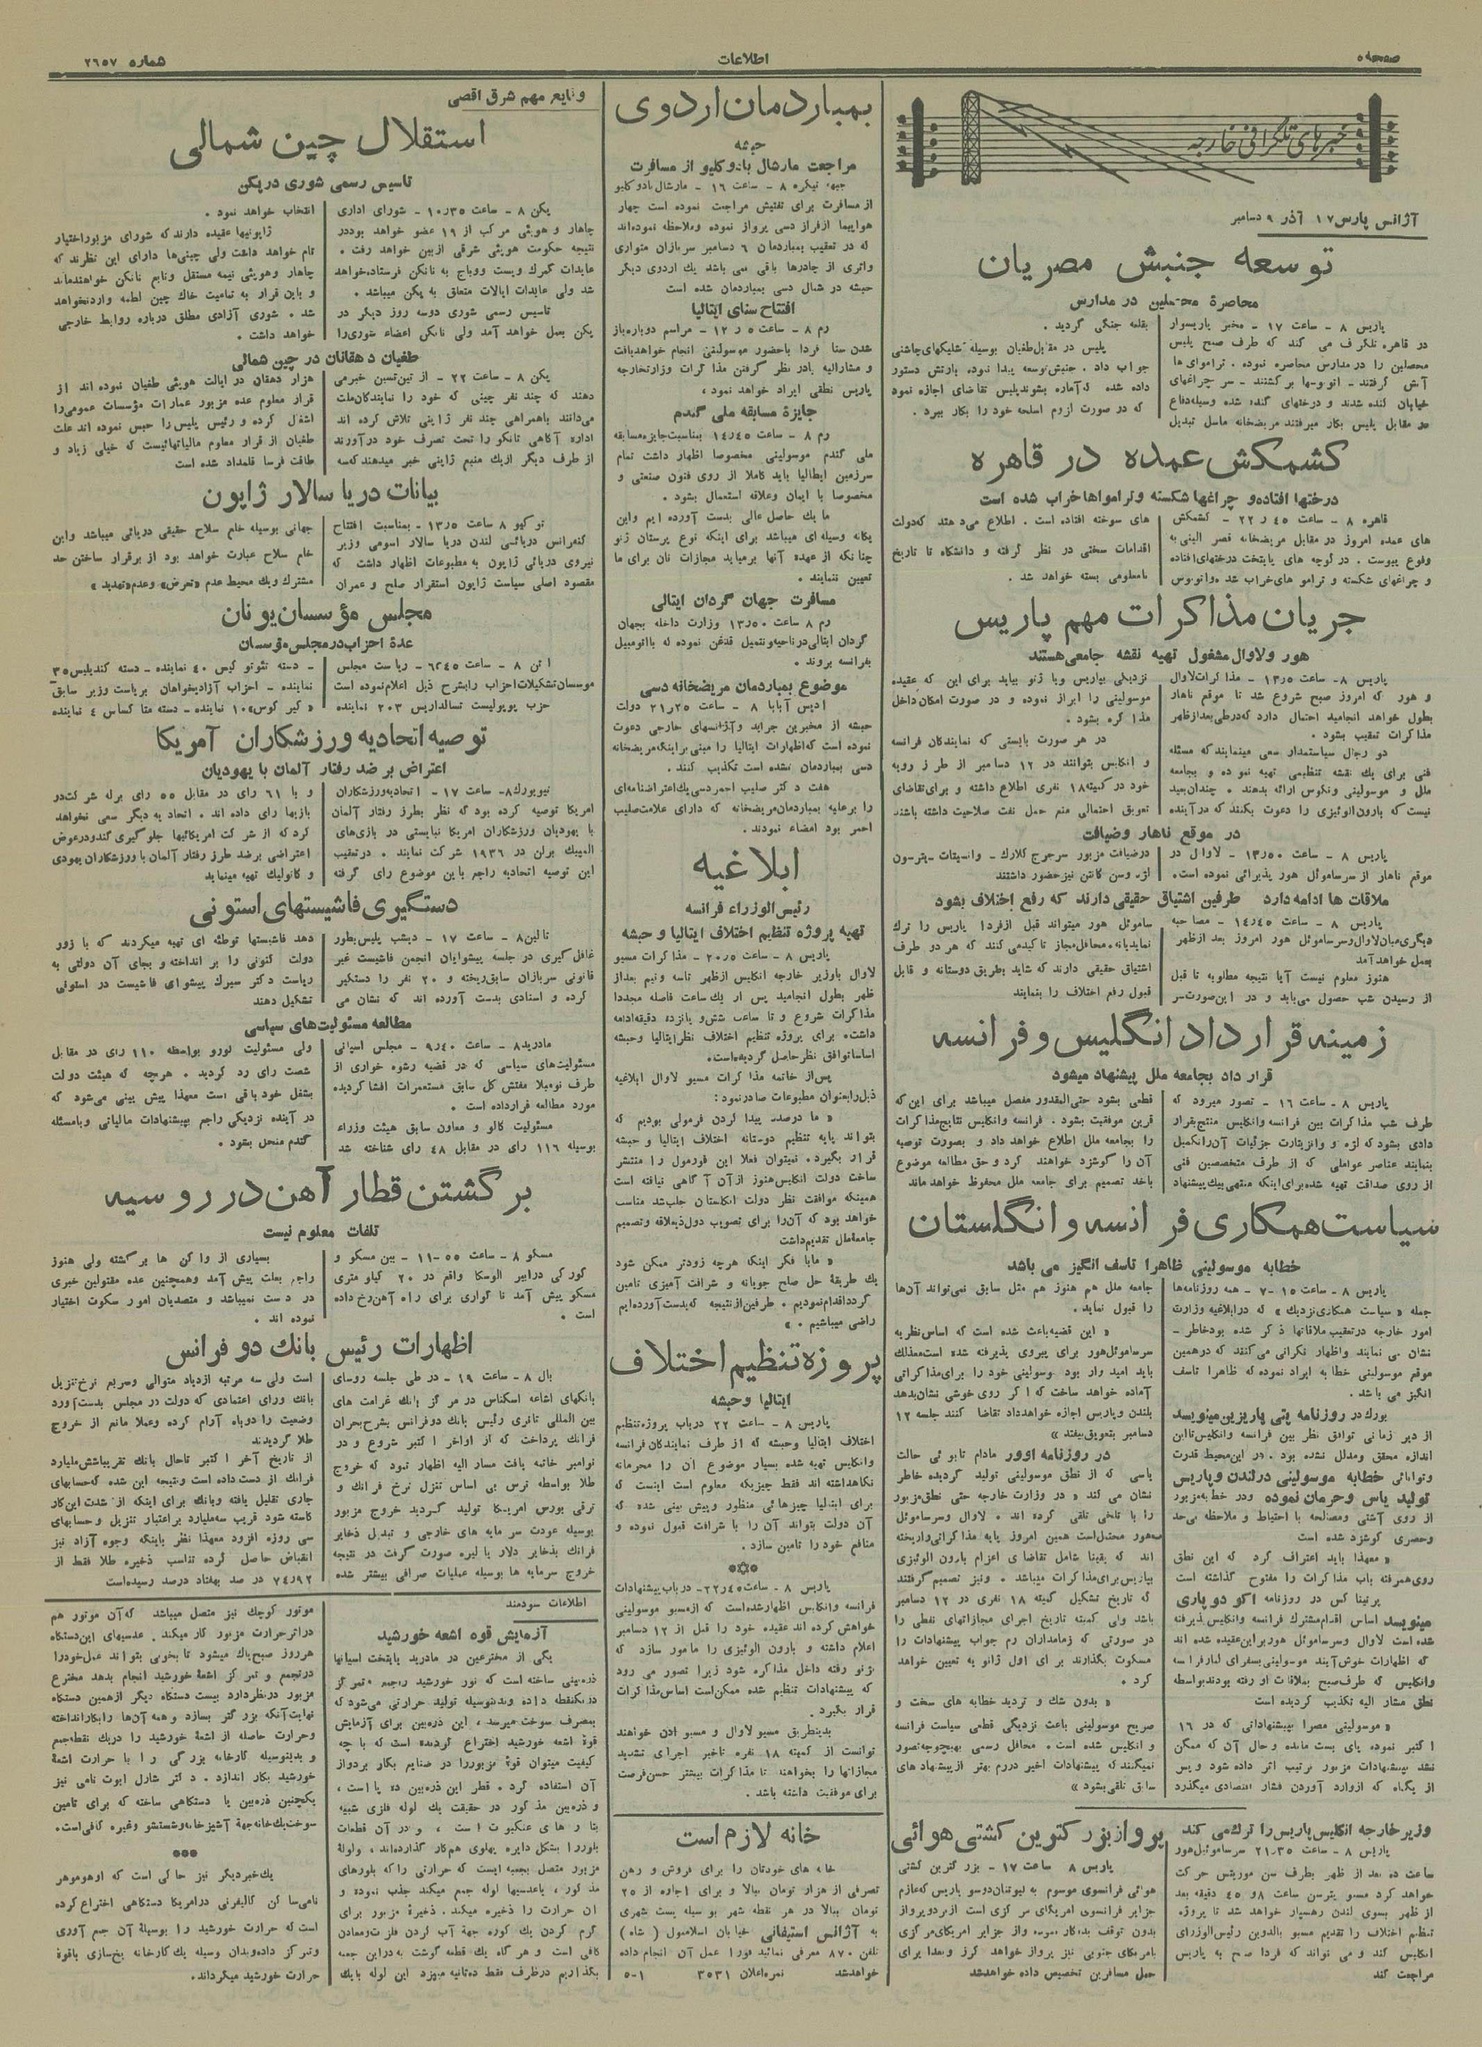 صفحه ۵
اطلاعات
شماره ۲۶۵۷
خبرهای تلگرافی خارجه
آژانس پارس ۱۷ آذر ۹ دسامبر
توسعه جنبش مصریان
محاصرة محصلین در مدارس
پاریس ۸ - ساعت ۱۷ - مخبر پاریسوار
در قاهره تلگرف می کند که طرف صبح پلیس
محصلین را در مدارس محاصره نموده . تراموای ها
آتش گرفتند - اتوبوسها برگشتند - سر چراغهای
خیابان کنده شدند و درختهای کنده شده وسیله دفاع
در مقابل پلیس بکار میرفتند مریضخانه ماسل تبدیل
بقلعه جنگی گردید .
پلیس در مقابل طغیان بوسیله شلیکهای چاشنی
جواب داد . جنبش توسعه پیدا نموده بارتش دستور
داده شده که آماده بشوند پلیس تقاضای اجازه نمود
که در صورت لزوم اسلحه خود را بکار ببرد .
کشمکش عمده در قاهره
درختها افتاده و چراغها شکسته و ترامواها خراب شده است
قاهره ۸ - ساعت ۴۵ ر ۲۲ - کشمکش
های عمده امروز در مقابل مریضخانه قصر العینی به
وقوع پیوست . در کوچه های پایتخت درختهای افتاده
و چراغهای شکسته و ترامو های خراب شده و اتوبوس
های سوخته افتاده است . اطلاع می دهند که دولت
اقدامات سختی در نظر گرفته و دانشگاه تا تاریخ
نامعلومی بسته خواهد شد .
جریان مذاکرات مهم پاریس
هور و لاوال مشغول تهیه نقشه جامعی هستند
پاریس ۸ - ساعت ۱۳٫۵ - مذاکرات لاوال
و هور که امروز صبح شروع شد تا موقع ناهار
بطول خواهد انجامید احتمال دارد که در طی بعد از ظهر
مذاکرات تعقیب بشود .
دو رجال سیاستمدار سعی مینمایند که مسئله
فنی برای یک نقشه تنظیمی تهیه نموده و بجامعه
ملل و موسولینی و نگوس ارائه بدهند . چندان بعید
نیست که بارون الوئیزی را دعوت بکنند که در آینده
نزدیکی بپاریس و یا ژنو بیاید برای این که عقیده
موسولینی را ابراز نموده و در صورت امکان داخل
مذاکره بشود .
در هر صورت بایستی که نمایندگان فرانسه
و انگلیس بتوانند در ۱۲ دسامبر از طرز رویه
خود در کمیته ۱۸ نفری اطلاع داشته و برای تقاضای
تعویق احتمالی منع حمل نفت صلاحیت داشته باشند
در موقع ناهار و ضیافت
پاریس ۸ - ساعت ۱۳٫۵۰ - لاوال در
موقع ناهار از سر ساموئل هور پذیرائی نموده است.
در ضیافت مزبور سر جرج کلارک - وانسیتارت - پترسون
لژه و سن کانتن نیز حضور داشتند
ملاقات ها ادامه دارد طرفین اشتیاق حقیقی دارند که رفع اختلاف بشود
پاریس ۸ - ساعت ۱۴٫۴۵ - مصاحبه
دیگری میان لاوال و سر ساموئل هور امروز بعد از ظهر
بعمل خواهد آمد
هنوز معلوم نیست آیا نتیجه مطلوبه تا قبل
از رسیدن شب حصول می یابد و در این صورت سر
ساموئل هور میتواند قبل از فردا پاریس را ترک
نماید یا نه . محافل مجاز تاکید می کنند که هر دو طرف
اشتیاق حقیقی دارند که شاید بطریق دوستانه و قابل
قبول رفع اختلاف را بنمایند
زمینه قرارداد انگلیس و فرانسه
قرار داد بجامعه ملل پیشنهاد میشود
پاریس ۸ - ساعت ۱۶ - تصور میرود که
طرف شب مذاکرات بین فرانسه و انگلیس منتج بقرار
دادی بشود که لژه و وانزیتارت جزئیات آن را تکمیل
بنمایند عناصر عواملی که از طرف متخصصین فنی
از روی صداقت تهیه شده برای اینکه منتهی بیک پیشنهاد
قطعی بشود حتی المقدور مفصل میباشد برای این که
قرین موفقیت بشود . فرانسه و انگلیس نتایج مذاکرات
را بجامعه ملل اطلاع خواهد داد و بصورت توصیه
آن را گوشزد خواهند کرد و حق مطالعه موضوع
یاخذ تصمیم برای جامعه ملل محفوظ خواهد ماند
سیاست همکاری فرانسه و انگلستان
خطابه موسولینی ظاهرا تاسف انگیز می باشد
پاریس ۸ - ساعت ۱۵-۷ - همه روزنامه ها
جمله « سیاست همکاری نزدیک » که در ابلاغیه وزارت
امور خارجه در تعقیب ملاقاتها ذکر شده بود خاطر
نشان می نمایند و اظهار نگرانی می کنند که در همین
موقع موسولینی خطابه ایراد نموده که ظاهرا تاسف
انگیز می باشد .
بورک در روزنامه پتی پاریزین مینویسد
از دیر زمانی توافق نظر بین فرانسه و انگلیس تا این
اندازه محقق و مدلل نشده بود . در این محیط قدرت
و توانائی خطابه موسولینی در لندن و پاریس
تولید یاس و حرمان نموده ودر خطبه مزبور
از روی آشتی و مصالحه با احتیاط و ملاحظه بی حد
و حصری گوشزد شده است
« معهذا باید اعتراف کرد که این نطق
روی همرفته باب مذاکرات را مفتوح گذاشته است
پرتیناکس در روزنامه اکو دو پاری
مینویسد اساس اقدام مشترک فرانسه و انگلیس پذیرفته
شده است لاوال و سر ساموئل هور بر این عقیده شده اند
که اظهارات خوش آیند موسولینی بسفرای کبار فرانسه
و انگلیس که طرف صبح بملاقات او رفته بودند بواسطه
نطق مشار الیه تکذیب گردیده است
« موسولینی مصرا پیشنهاداتی که در ۱۶
اکتبر نموده پای بست مانده و حال آن که ممکن
نشد پیشنهادات مزبور ترتیب اثر داده شود و پس
از یگماه که از وارد آوردن فشار اقتصادی میگذرد
جامعه ملل هم هنوز هم مثل سابق نمی تواند آن ها
را قبول نماید .
« این قضیه باعث شده است که اساس نظریه
سر ساموئل هور برای پیروی پذیرفته شده است معذلک
باید امید وار بود موسولینی خود را برای مذاکراتی
آماده خواهد ساخت که اگر روی خوشی نشان بدهد
بلندن و پاریس اجازه خواهد داد تقاضا کنند جلسه ۱۲
دسامبر بتعویق بیفتد »
در روزنامه اوور مادام تابوئی حالت
یاسی که از نطق موسولینی تولید گردیده خاطر
نشان می کند « در وزارت خارجه حتی نطق مزبور
را با تلخی تلقی کرده اند . لاوال و سر ساموئل
هور محتمل است همین امروز پایه مذاکراتی را ریخته
اند که یقینا شامل تقاضای اعزام بارون الوئیزی
بپاریس برای مذاکرات میباشد . و نیز تصمیم گرفتند
که تاریخ تشکیل کمیته ۱۸ نفری در ۱۲ دسامبر
باشد ولی کمیته تاریخ اجرای مجازاتهای نفطی را
در صورتی که زمامداران رم جواب پیشنهادات را
مسکوت بگذارند بر ای اول ژانویه به تعیین خواهد
کرد .
« بدون شک و تردید خطابه های سخت و
صریح موسولینی باعث نزدیکی قطعی سیاست فرانسه
و انگلیس شده است . محافل رسمی بهیچوجه تصور
نمیکنند که پیشنهادات اخیر در رم بهتر از پیشنهاد های
سابق تلقی بشود »
وزیر خارجه انگلیس پاریس را ترک می کند
پاریس ۸ - ساعت ۲۱٫۳۵ سر ساموئل هور
ساعت ده بعد از ظهر بطرف سن موریتس حرکت
خواهد کرد مسیو پترسن ساعت ۸ و ۴۵ دقیقه بعد
از ظهر بسوی لندن رهسپار خواهد شد تا پروژه
تنظیم اختلاف را تقدیم مسیو بالدوین رئیس الوزرای
انگلیس کند و می تواند که فردا صبح به پاریس
مراجعت کند
پرواز بزرکترین کشتی هوائی
پاریس ۸ ساعت ۱۷ - بزرگترین کشتی
هوائی فرانسوی موسوم به لیوتنان دوسو پاریس که عازم
جزایر فرانسوی امریکای مرکزی است از بردو پرواز
بدون توقف بداکار نموده و از جزایر امریکای مرکزی
بامریکای جنوبی نیز پرواز خواهد کرد و بعدا برای
حمل مسافرین تخصیص داده خواهد شد
بمباردمان اردوی
حبشه
مراجعت مارشال بادوکلیو از مسافرت
جبهه تیگره ۸ - ساعت ۱۶ - مارشال بادوکلیو
از مسافرت برای تفتیش مراجعت نموده است چهار
هواپیما از فراز دسی پرواز نموده و ملاحظه نموده اند
که در تعقیب بمباردمان ۶ دسامبر سربازان متواری
و اثری از چادرها باقی نمی باشد یک اردوی دیگر
حبشه در شمال دسی بمباردمان شده است
افتتاح سنای ایتالیا
رم ۸ - ساعت ۵ ر ۱۲ - مراسم دوباره باز
شدن سنا فردا با حضور موسولینی انجام خواهد یافت
و مشارالیه بادر نظر گرفتن مذاکرات وزار تخارجه
پاریس نطقی ایراد خواهد نمود ،
جایزة مسابقه ملی گندم
رم ۸ - ساعت ۱۴٫۴۵ بمناسبت جایزه مسابقه
ملی گندم موسولینی مخصوصا اظهار داشت تمام
سرزمین ایطالیا باید کاملا از روی فنون صنعتی و
مخصوصا با ایمان و علاقه استعمال بشود .
ما یک حاصل عالی بدست آورده ایم و این
یگانه وسیله ای میباشد برای اینکه نوع پرستان ژنو
چنانکه از عهده آنها برمیاید مجازات نان برای ما
تعیین ننمایند .
مسافرت جهان گردان ایتالی
رم ۸ ساعت ۱۳٫۵۰ وزارت داخله بجهان
گردان ایتالی در ناحیه ونتمیل قدغن نموده که با اتومبیل
بفرانسه بروند .
موضوع بمباردمان مریضخانه دسی
ادیس آبابا ۸ - ساعت ۲۱٫۲۵ دولت
حبشه از مخبرین جراید و آژانسهای خارجی دعوت
نموده است که اظهارات ایتالیا را مبنی بر اینکه مریضخانه
دسی بمباردمان نشده است تکذیب کنند .
هفت دکتر صلیب احمر دسی یک اعتراضنامه ای
را بر علیه بمباردمان مریضخانه که دارای علامت صلیب
احمر بود امضاء نمودند .
ابلاغیه
رئیس الوزراء فرانسه
تهیه پروژه تنظیم اختلاف ایتالیا و حبشه
پاریس ۸ - ساعت ۲۰٫۵ - مذاکرات مسیو
لاوال با وزیر خارجه انگلیس از ظهر تا سه و نیم بعد از
ظهر بطول انجامید پس از یک ساعت فاصله مجددا
مذاکرات شروع و تا ساعت شش و پانزده دقیقه ادامه
داشت . برای پروژه تنظیم اختلاف نظر ایتالیا و حبشه
اساسا توافق نظر حاصل گردیده است.
پس از خاتمه مذاکرات مسیو لاوال ابلاغیه
ذیل را بعنوان مطبوعات صادر نمود :
« ما در صدد پیدا کردن فرمولی بودیم که
بتواند پایه تنظیم دوستانه اختلاف ایتالیا و حبشه
قرار بگیرد . نمیتوان فعلا این فورمول را منتشر
ساخت دولت انگلیس هنوز از آن آگاهی نیافته است
همینکه موافقت نظر دولت انگلستان جلب شد مناسب
خواهد بود که آن را برای تصویب دول ذیعلاقه و تصمیم
جامعه ملل تقدیم داشت
« ما با فکر اینکه هرچه زودتر ممکن شود
یک طریقة حل صلح جویانه و شرافت آمیزی تامین
گردد اقدام نمودیم . طرفین از نتیجه که بدست آورده ایم
راضی میباشیم . »
پروژه تنظیم اختلاف
ایتالیا و حبشه
پاریس ۸ - ساعت ۲۲ در باب پروژه تنظیم
اختلاف ایتالیا و حبشه که از طرف نمایندگان فرانسه
و انگلیس تهیه شده بسیار موضوع ان را محرمانه
نگاهداشته اند فقط چیزیکه معلوم است اینست که
برای ایتالیا چیزهائی منظور و پیش بینی شده که
آن دولت بتواند آن را با شرافت قبول نموده و
منافع خود را تامین سازد .
***
پاریس ۸ - ساعت ۲۲٫۴۵ - در باب پیشنهادات
فرانسه و انگلیس اظهار شده است که از مسیو موسولینی
خواهش کرده اند عقیده خود را قبل از ۱۲ دسامبر
اعلام داشته و بارون الوئیزی را مامور سازد که
بژنو رفته داخل مذاکره شود زیرا تصور می رود
که پیشنهادات تنظیم شده ممکن است اساس مذاکرات
قرار بگیرد .
بدینطریق مسیو لاوال و مسیو ادن خواهند
توانست از کمیته ۱۸ نفره تاخیر اجرای تشدید
مجازاتها را بخواهند تا مذاکرات بیشتر حسن فرصت
برای موفقیت داشته باشد .
خانه لازم است
خانه های خودتان را برای فروش و رهن
تصرفی از هزار تومان ببالا و برای اجاره از ۲۵
تومان ببالا در هر نقطه شهر بوسیله پست شهری
به آژانس استیفائی خیابان اسلامبول ( شاه )
تلفن ۸۷۰ معرفی نمائید فورا عمل آن انجام داده
خواهد شد نمره اعلان ۳۵۳۱ ۵-۱
وقایع مهم شرق اقصی
استقلال چین شمالی
تاسیس رسمی شوری در پکن
پکن ۸ - ساعت ۱۰٫۳۵ - شورای اداری
چاهار و هوپئی مرکب از ۱۹ عضو خواهد بود در
نتیجه حکومت هوپئی شرقی از بین خواهد رفت .
عایدات گمرک و پست و وباج به نانکن فرستاده خواهد
شد ولی عایدات ایالات متعلق به پکن میباشد .
تاسیس رسمی شوری دو سه روز دیگر در
پکن بعمل خواهد آمد ولی نانکن اعضاء شوری را
انتخاب خواهد نمود .
ژاپونیها عقیده دارند که شورای مزبور اختیار
تام خواهد داشت ولی چینی ها دارای این نظرند که
چاهار و هوپئی نیمه مستقل و تابع نانکن خواهند ماند
و باین قرار به تمامیت خاک چین لطمه وارد نخواهد
شد . شوری آزادی مطلق درباره روابط خارجی
خواهد داشت .
طغیان دهقانان در چین شمالی
پکن ۸ - ساعت ۲۲ - از تین تسین خبر می
دهند که چند نفر چینی که خود را نمایندگان ملت
می دانند باهمراهی چند نفر ژاپنی تلاش کرده اند
اداره آگاهی تانکو را تحت تصرف خود در آورند
از طرف دیگر از یک منبع ژاپنی خبر میدهند که سه
هزار دهقان در ایالت هوپئی طغیان نموده اند از
قرار معلوم عده مزبور عمارات مؤسسات عمومی را
اشغال کرده و رئیس پلیس را حبس نموده اند علت
طغیان از قرار معلوم مالیاتهائیست که خیلی زیاد و
طاقت فرسا قلمداد شده است
بیانات دریا سالار ژاپون
توکیو ۸ ساعت ۱۳٫۵ - بمناسبت افتتاح
کنفرانس دریائی لندن دریا سالار اسومی وزیر
نیروی دریائی ژاپون به مطبوعات اظهار داشت که
مقصود اصلی سیاست ژاپون استقرار صلح و عمران
جهانی بوسیله خلع سلاح حقیقی دریائی میباشد و این
خلع سلاح عبارت خواهد بود از برقرار ساختن حد
مشترک و یک محیط عدم « تعرض » و عدم « تهدید »
مجلس مؤسسان یونان
عدة احزاب در مجلس مؤسسان
اتن ۸ - ساعت ۶۲۴۵ - ریاست مجلس
موسسان تشکیلات احزاب را بشرح ذیل اعلام نموده است
حزب پوپولیست تسالداریس ۲۰۳ نماینده
- دسته تئوتوکیس ۴۰ نماینده - دسته کندیلیس ۳۵
نماینده - احزاب آزادیخواهان بریاست وزیر سابق
« گیرکوس » ۱۰ نماینده - دسته متا کساس ۴ نماینده
توصیه اتحادیه ورزشکاران آمریکا
اعتراض بر ضد رفتار آلمان با یهودیان
نیویورک ۸ - ساعت ۱۷ - اتحادیه ورزشکاران
امریکا توصیه کرده بود که نظر بطرز رفتار آلمان
با یهودیان ورزشکاران امریکا نبایستی در بازی های
المپیک برلن در ۱۹۳۶ شرکت نمایند . در تعقیب
این توصیه اتحادیه راجع باین موضوع رای گرفته
و با ۶۱ رای در مقابل ۵۵ رای برله شرکت در
بازیها رای داده اند . اتحادیه دیگر سعی نخواهد
کرد که از شرکت امریکائیها جلوگیری کند و در عوض
اعتراضی بر ضد طرز رفتار آلمان با ورزشکاران یهودی
و کاتولیک تهیه مینماید
دستگیری فاشیستهای استونی
تالین ۸ - ساعت ۱۷ - دیشب پلیس بطور
غافل گیری در جلسه پیشوایان انجمن فاشیست غیر
قانونی سربازان سابق ریخته و ۲۰ نفر را دستگیر
کرده و اسنادی بدست آورده اند که نشان می
دهد فاشیستها توطئه ای تهیه میکردند که با زور
دولت کنونی را بر انداخته و بجای آن دولتی به
ریاست دکتر سیرک پیشوای فاشیست در استونی
تشکیل دهند
مطالعه مسئولیت های سیاسی
مادرید ۸ - ساعت ۹٫۴۰ - مجلس اسپانی
مسئولیت های سیاسی که در قضیه رشوه خواری از
طرف نومبلا مفتش کل سابق مستعمرات افشا گردیده
مورد مطالعه قرار داده است .
مسئولیت کالو و معاون سابق هیئت وزراء
بوسیله ۱۱۶ رای در مقابل ۴۸ رای شناخته شد
ولی مسئولیت لورو بواسطه ۱۱۰ رای در مقابل
شصت رای رد گردید . هرچه که هیئت دولت
بشغل خود باقی است معهذا پیش بینی می شود که
در آینده نزدیکی راجع بپیشنهادات مالیاتی و با مسئله
گندم منحل بشود .
برگشتن قطار آهن در روسیه
تلفات معلوم نیست
مسکو ۸ - ساعت ۵۵-۱۱ - بین مسکو و
گورکی در ابیر الوسکا واقع در ۲۰ کیلو متری
مسکو پیش آمد نا گواری برای راه آهن رخ داده
است .
بسیاری از واگن ها برگشته ولی هنوز
راجع بعلت پیش آمد و همچنین عده مقتولین خبری
در دست نمیباشد و متصدیان امور سکوت اختیار
نموده اند .
اظهارات رئیس بانک دو فرانس
بال ۸ - ساعت ۱۹ - در طی جلسه روسای
بانکهای اشاعه اسکناس در مرکز بانک غرامت های
بین المللی تانری رئیس بانک دو فرانس بشرح بحران
فرانک پرداخت که از اواخر اکتبر شروع و در
نوامبر خاتمه یافت مسار الیه اظهار نمود که خروج
طلا بواسطه ترس بی اساس تنزل نرخ فرانک و
ترقی بورس امریکا تولید گردید خروج مزبور
بوسیله عودت سرمایه های خارجی و تبدیل ذخایر
فرانک بذخایر دلار یا لیره صورت گرفت در نتیجه
خروج سرمایه ها بوسیله عملیات صرافی بیشتر شده
است ولی سه مرتبه ازدیاد متوالی و سریع نرخ تنزیل
بانک و رای اعتمادی که دولت در مجلس بدست آورد
وضعیت را دوباره آرام کرده و عملا مانع از خروج
طلا گردیدند
از تاریخ آخر اکتبر تاحال بانک تقریبا شش ملیارد
فرانک از دست داده است و نتیجه این شده که حسابهای
جاری تقلیل یافته و بانک برای اینکه از شدت این کار
کاسته شود قریب سه ملیارد بر اعتبار تنزیل و حسابهای
سی روزه افزود معهذا نظر باینکه وجوه آزاد نیز
انقباض حاصل کرده تناسب ذخیره طلا فقط از
۷۴٫۹۲ در صد بهفتاد درصد رسیده است
اطلاعات سودمند
آزمایش قوه اشعه خورشید
یکی از مخترعین در مادرید پایتخت اسپانیا
ذره بینی ساخته است که نور خورشید را جمع و تمرکز
در یک نقطه داده و بدینوسیله تولید حرارتی می شود که
بمصرف سوخت میرسد ، این ذره بین برای آزمایش
قوه اشعه خورشید اختراع گردیده است که با چه
کیفیت میتوان قوة مزبور را در صنایع بکار برد و از
آن استفاده کرد . قطر این ذره بین ده پا است ،
و ذره بین مذکور در حقیقت یک لوله فلزی شبیه
بتارهای عنکبوت است ، و در آن قطعات
بلور را بشکل دایره پهلوی هم کار گذارده اند ، و لوله
مزبور متصل بجعبه ایست که حرارتی را که بلورهای
مذکور ، یا عدسیها لوله جمع میکند جذب نموده و
ان حرارت را ذخیره میکند . ذخیرة مزبور برای
گرم کردن یک کوره جهة آب کردن فلزت و معادن
کافی است و هر گاه یک قطعه گوشت به در این جعبه
بگذاریم در ظرف فقط ده ثانیه میپزد این لوله با یک
موتور کوچک نیز متصل میباشد که آن موتور هم
در اثر حرارت مزبور کار میکند . عدسیهای این دستگاه
هر روز صبح پاک میشود تا بخوبی بتواند عمل خود را
در تجمع و تمرکز اشعة خورشید انجام بدهد مخترع
مزبور در نظر دارد بیست دستگاه دیگر از همین دستگاه
نهایت آنکه بزرگتر بسازد و همه آن ها را بکار انداخته
و حرارت حاصله از اشعة خورشید را در یک نقطه جمع
و بدینوسیله کارخانه بزرگی را با حرارت اشعة
خورشید بکار اندازد . دکتر شارل ابوت نامی نیز
یکچنین ذره بین یا دستگاهی ساخته که برای تامین
سوخت یک خانه جهة آشپزخانه و شستشو و غیره کافی است .
***
یک خبر دیگر نیز حاکی است که اوهوموهر
نامی ساکن کالیفرنی در امریکا دستگاهی اختراع کرده
است که حرارت خورشید را بوسیلة آن جمع آوری
و تمرکز داده و بدان وسیله یک کارخانه یخ سازی باقوة
حرارت خورشید میگرداند .